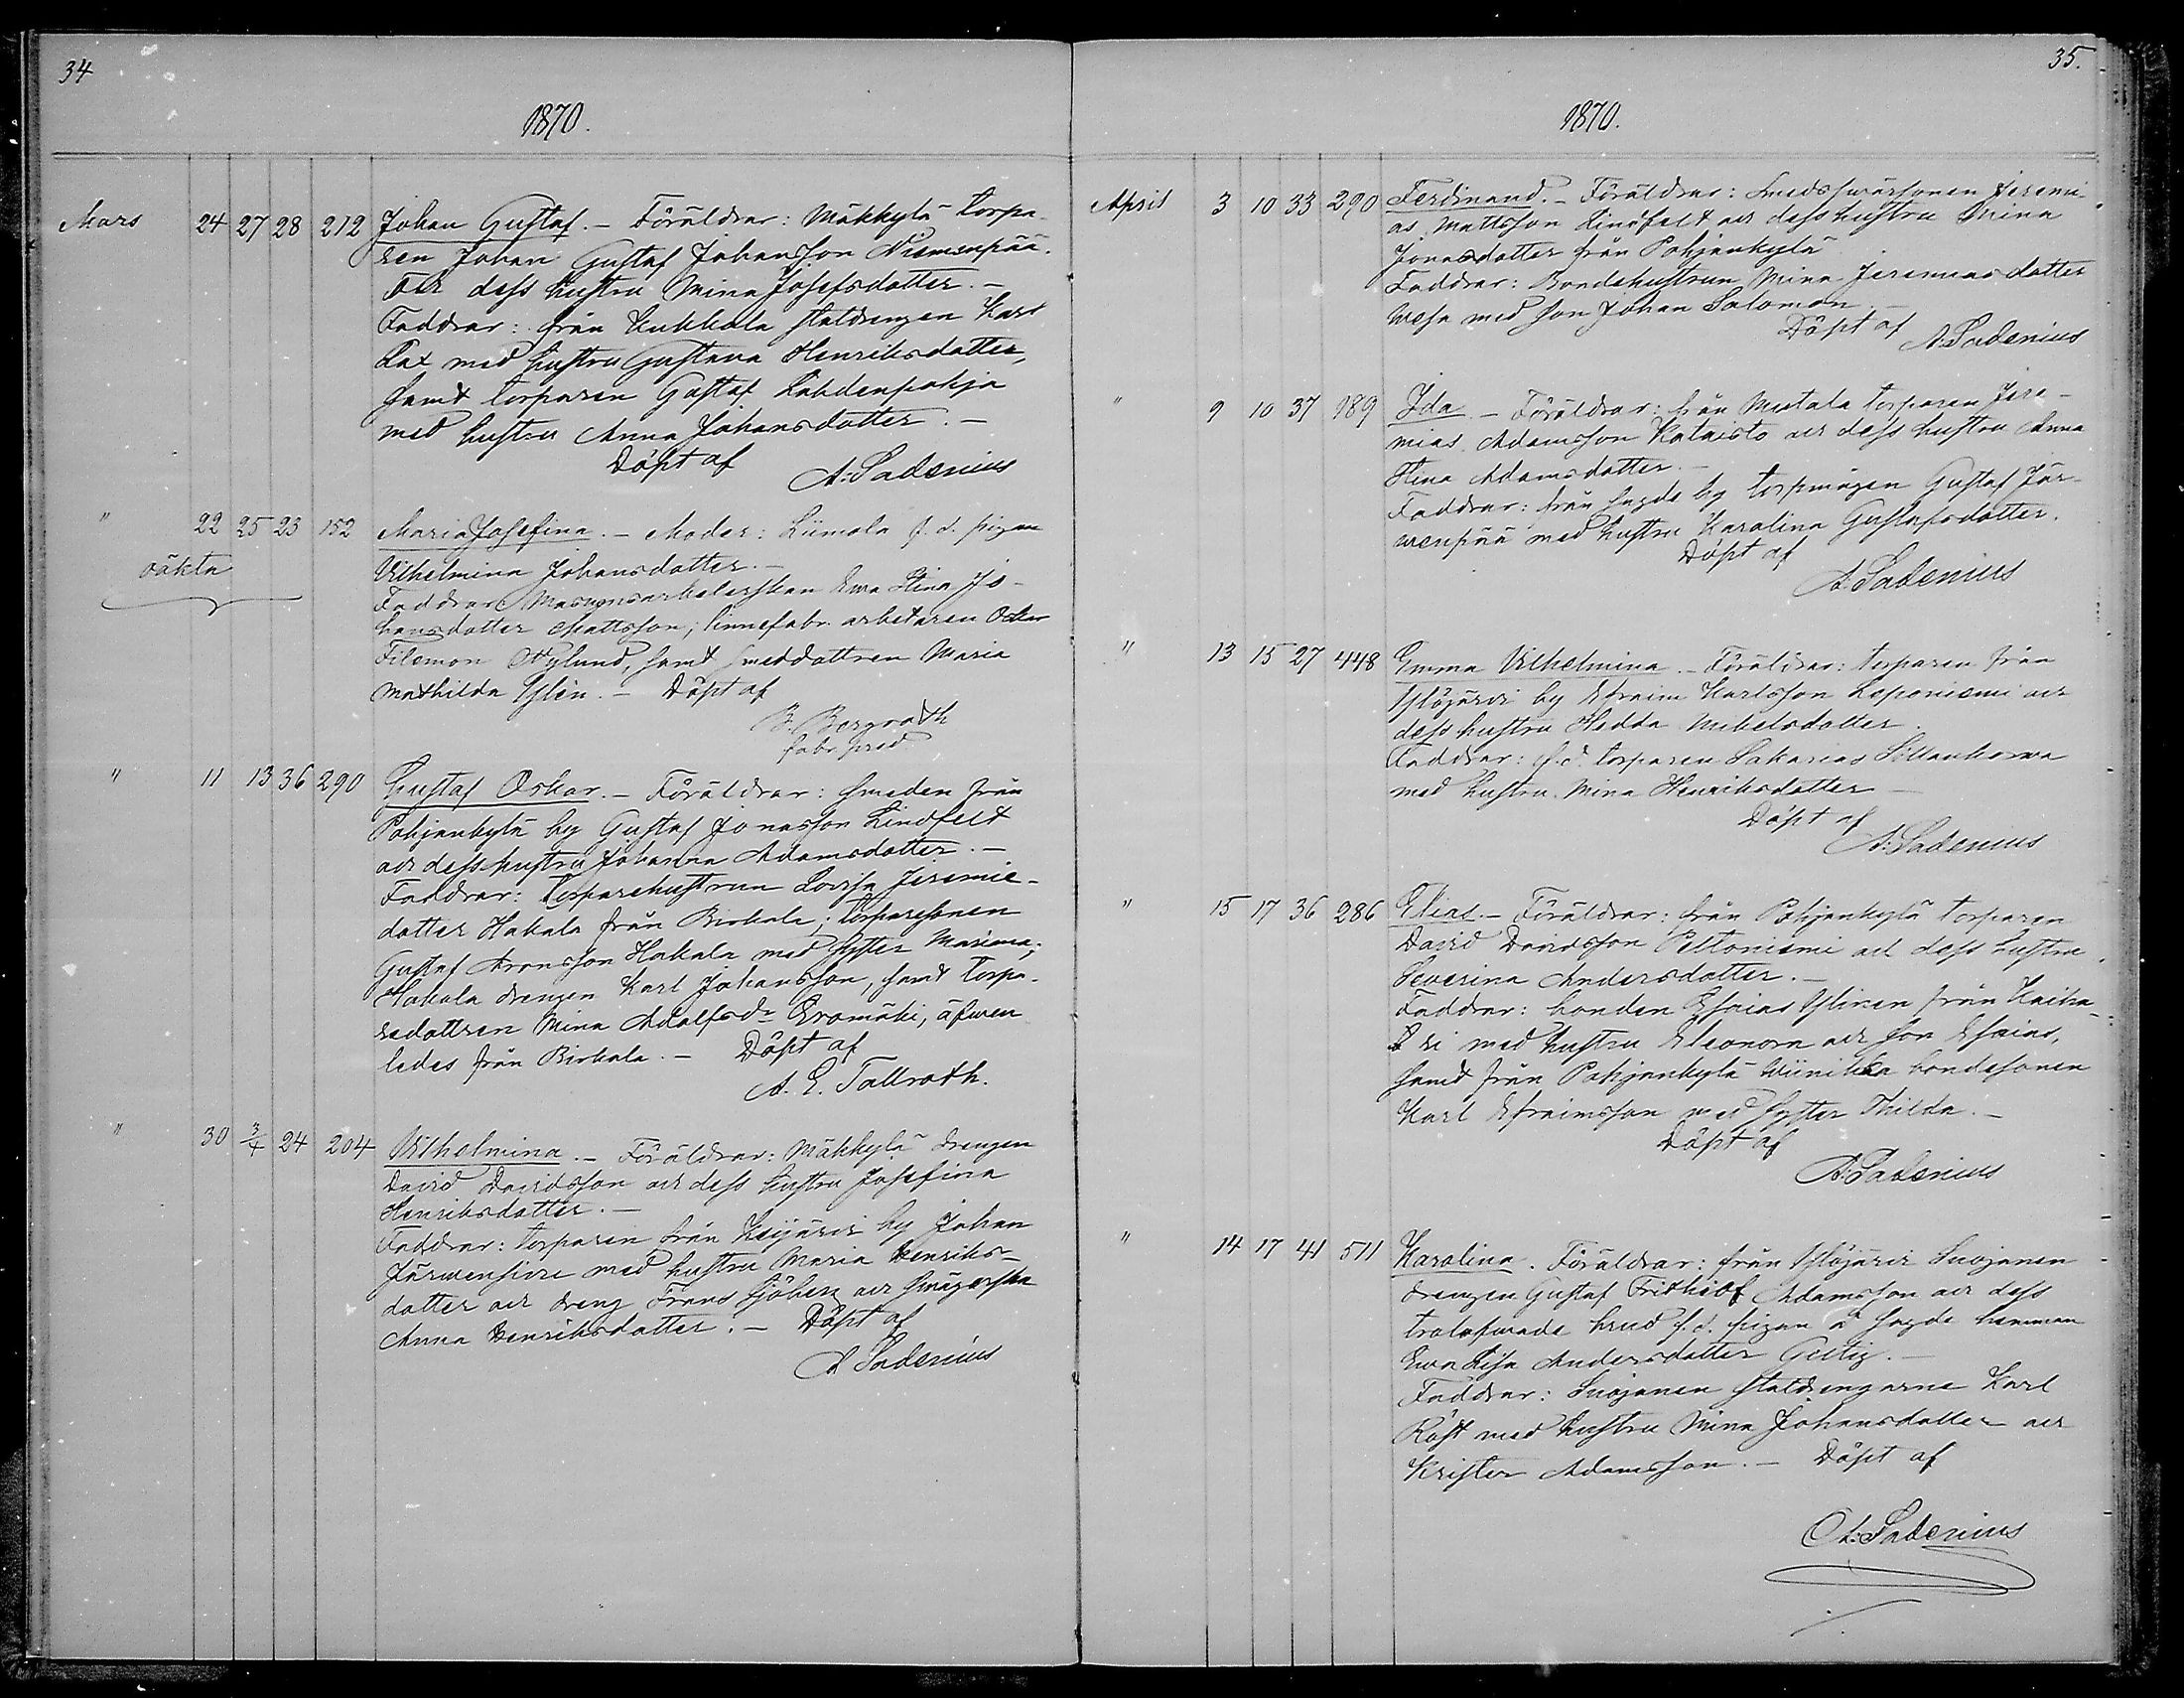 34
1870.
Mars 24 27 28 212 Johan Gustaf. – Föräldrar: Mäkkylä torpa-
ren Johan Gustaf Johansson Niemenpää
och dess hustru Mina Josefsdotter. –
Faddrar: från Kukkola statdrengen Karl
Lax med hustru Gustava Henriksdotter,
samt torparen Gustaf Lahdenpohja
med hustru Anna Johansdotter. –
Döpt af
A. Sadenius
" 22 25 23 152 Maria Josefina. – Moder: Liimola f. d. pigan
oäkta
Vilhelmina Johansdotter. –
Faddrar: Masugnsarbeterskan Ewa Stina Jo-
hansdotter Mattsson; linnefabr. arbetaren Oskar
Filemon Nylund, samt smeddottren Maria
Mathilda Glén. – Döpt af
B. Bergroth
fabr. pred
" 11 13 36 290 Gustaf Oskar. – Föräldrar: smeden från
Pohjankylä by Gustaf Jonasson Lindfelt
och dess hustru Johanna Adamsdotter. –
Faddrar: torparehustrun Lovisa Jeremie-
dotter Hakala från Birkala; torparesonen
Gustaf Aronsson Hakala med syster Mariana;
Hakala drengen Karl Johansson, samt torpa-
redottren Mina Adolfsdr Eromäki, äfven-
ledes från Birkala. – Döpt af
A. E. Tallroth.
" 30 3/4 24 204 Vilhelmina. – Föräldrar: Mäkkylä drengen
David Davidsson och dess hustru Josefina
Henriksdotter. –
Faddrar: torparen från Keijärvi by Johan
Järvensivu med hustru Maria Henriks-
dotter och dreng Frans Sjöberg och svägerska
Anna Henriksdotter. – Döpt af
A Sadenius
35.
1870.
April 3 10 33 290 Ferdinand. – Föräldrar: Smedsvärsonen Jeremi-
as Mattsson Lindfelt och dess hustru Mina
Jonasdotter från Pohjankylä
Faddrar: Bondehustrun Mina Jeremiasdotter
Wesa med son Johan Salomon. –
Döpt af
A. Sadenius
" 9 10 37 189 Ida. – Föräldrar: från Metala torparen Jere-
mias Adamsson Kataisto och dess hustru Anna
Stina Adamsdotter. –
Faddrar: från sagde by torpmågen Gustaf Jär-
wenpää med hustru Karolina Gustafsdotter.
Döpt af
A. Sadenius
" 13 15 27 448 Emma Vilhelmina. – Föräldrar: torparen från
Ylöjärvi by Efraim Karlsson Leponiemi och
dess hustru Hedda Mikelsdotter.
Faddrar: f. d. torparen Sakarias Sillankorva
med hustru Mina Henriksdotter –
Döpt af
A. Sadenius
" 15 17 36 286 Elias. – Föräldrar: från Pohjankylä torparen
David Davidsson Peltoniemi och dess hustru
Severina Andersdotter. –
Faddrar: bonden Esaias Ylinen från Kaiha-
ri med hustru Eleonora och son Esaias,
samt från Pohjankylä Wiinikka bondesonen
Karl Efraimsson med syster Thilda. –
Döpt af
A. Sadenius
" 14 17 41 511 Karolina. Föräldrar: från Ylöjärvi Suojanen
drengen Gustaf Frithiof Adamsson och dess
trolofvade brud f. d. pigan å sagde hemman
Ewa Lisa Andersdotter Geitig. –
Faddrar: Suojanen statdrengarne Karl
Röst med hustru Mina Johansdotter och
Krister Adamsson. – Döpt af
A. Sadenius